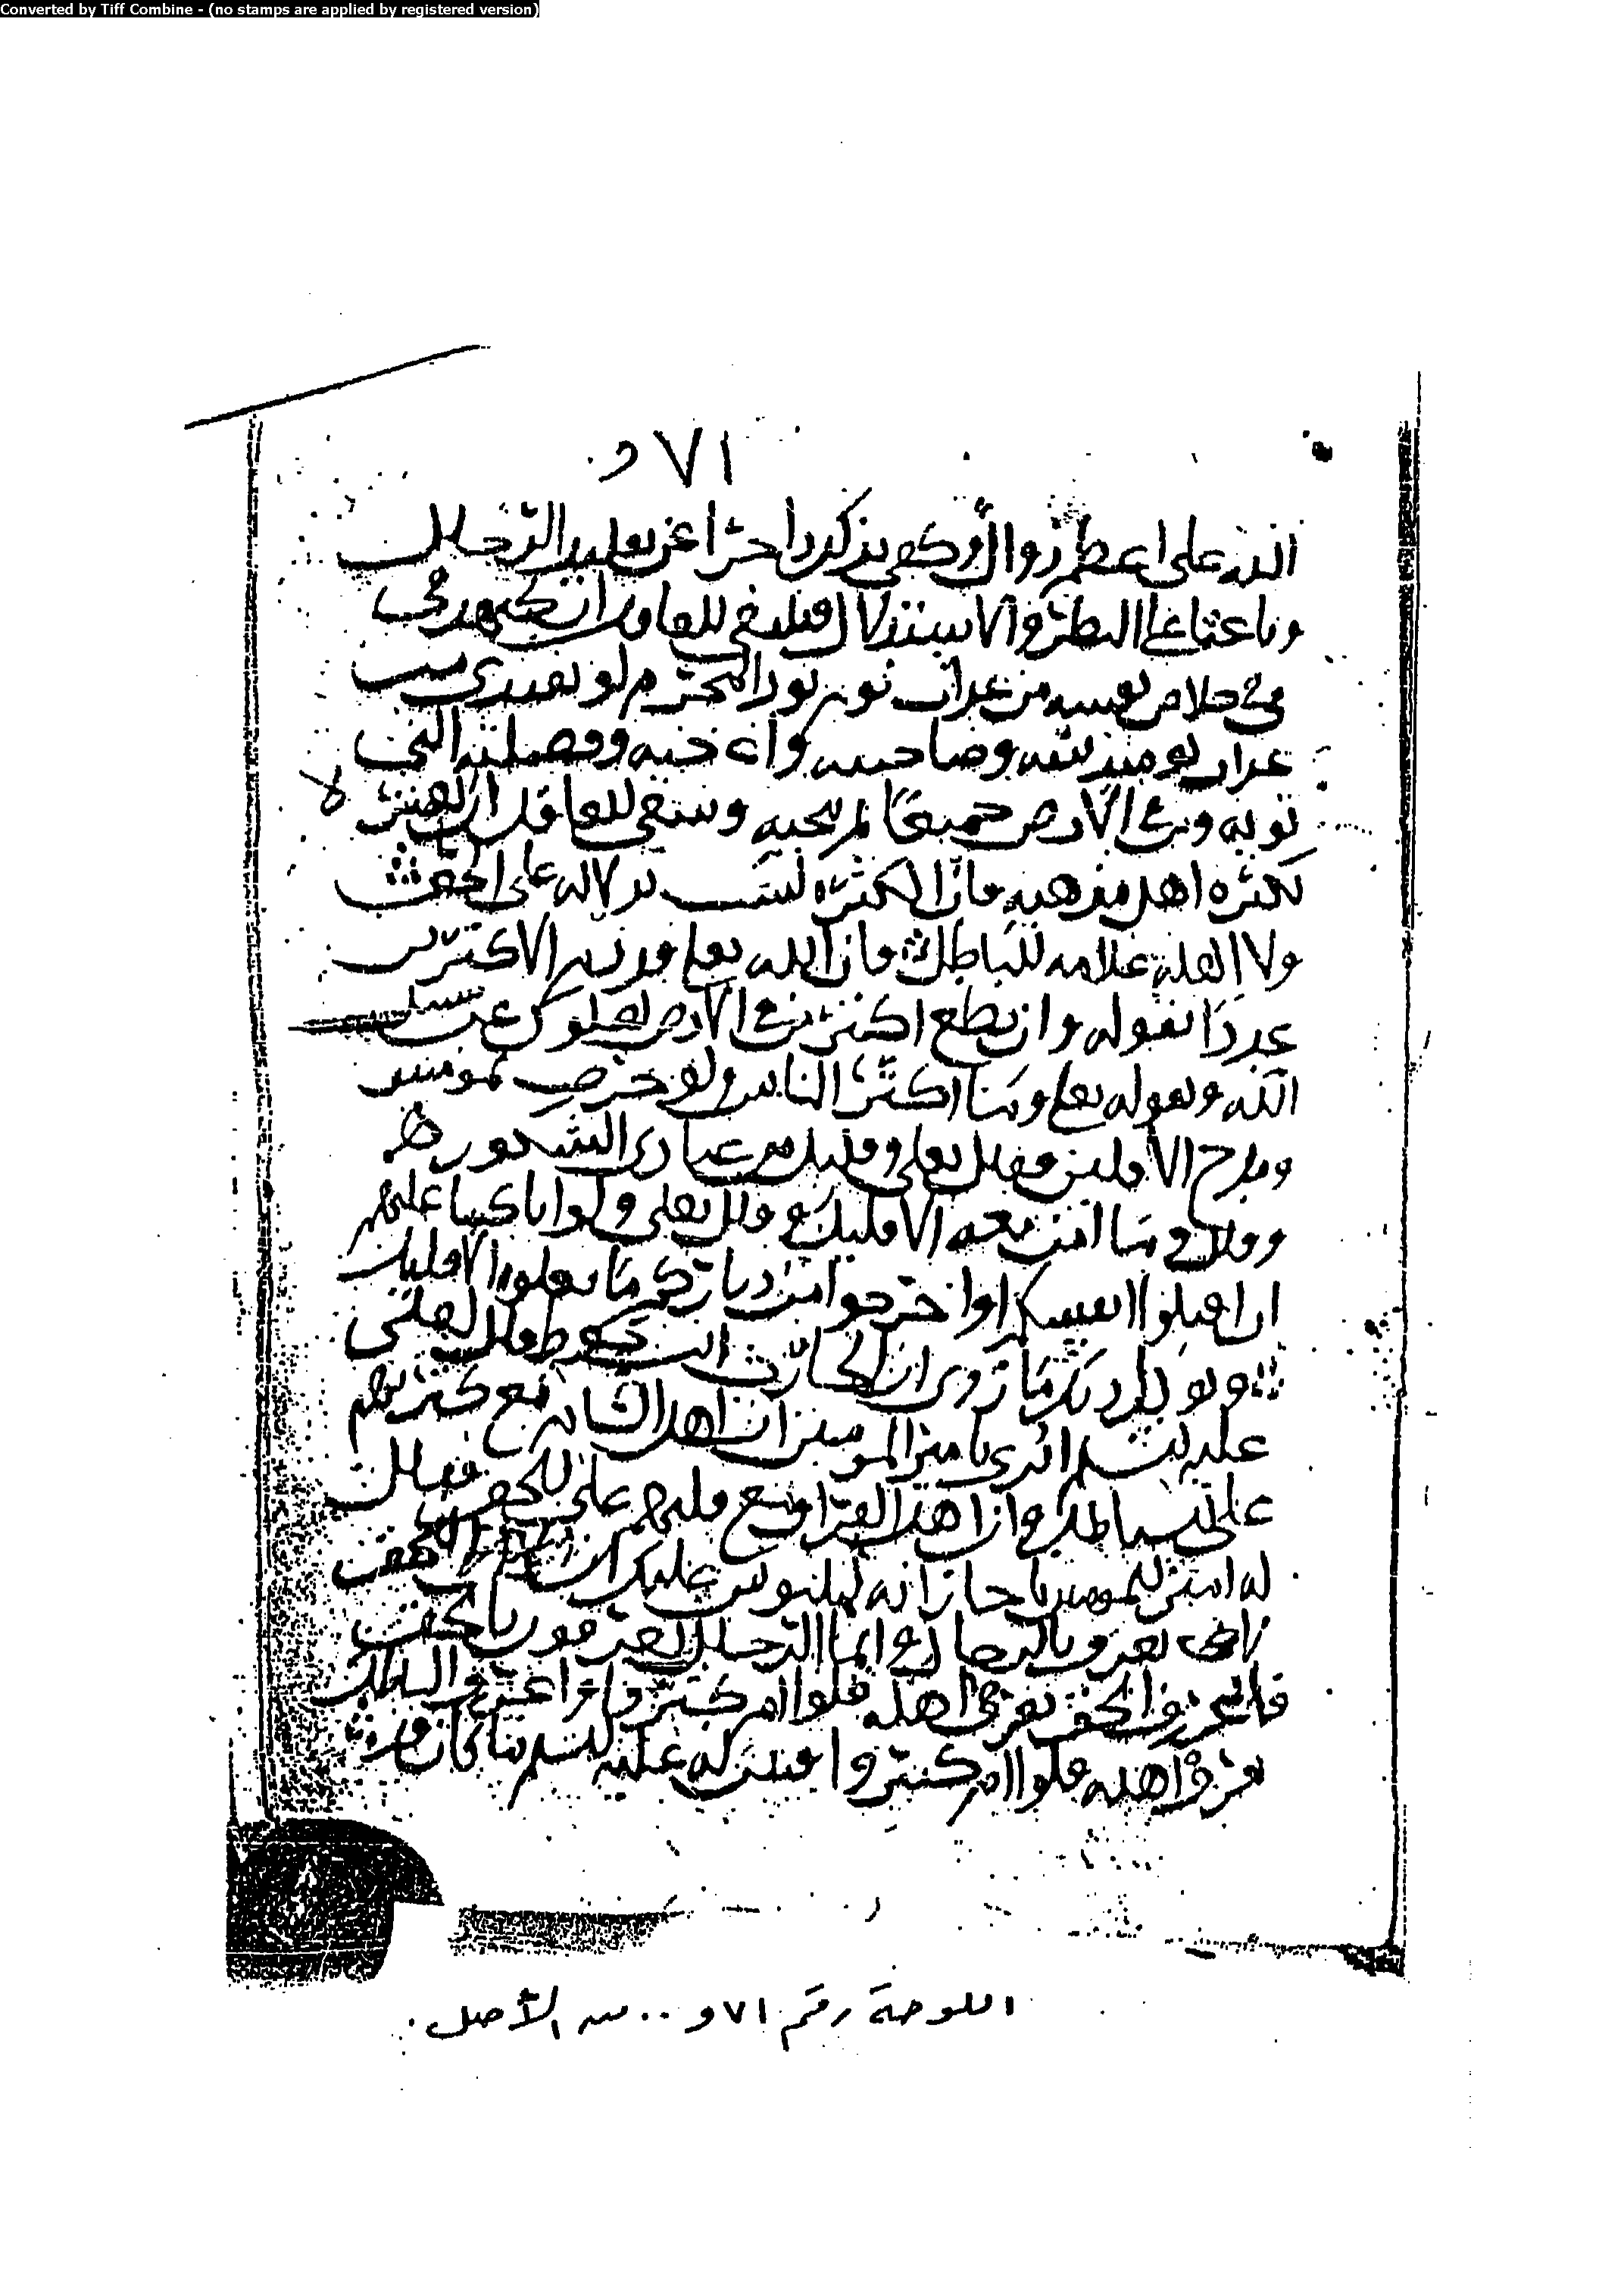 Converted by Tiff Combine - (no stamps are applied by registered version)
٧١ و
الله على اعظم زوال وكفى بذكر زاجرا عن تقليد الرجال
وباعثا على النظر والاستدلال فينبغي للعاقل ان يجتهد
في خلاص نفسه من عذاب يوم يود المجرم لو يفتدى من
عذاب يومئذ ببنيه وصاحبته واخيه وفصيلته التى
تويه ومن في الارض جميعا ثم ينجيه وينبغي للعاقل ان لا يغتر
بكثره اهل مذهبه فان الكثره ليست بدلاله على الحق
ولا القله علامه للباطل فان الله تعلى قد ذم الاكثرين
عددا بقوله وان تطع اكثر من في الارض يضلوك عن سبيل
الله وبقوله تعلى وما اكثر الناس ولو حرصت بمومنين
ومدح الاقلين فقال تعلى وقليل من عبادى الشكور
وقال وما امن معه الا قليل وقال تعلى ولو انا كتبنا عليهم
ان اقتلوا انفسكم او اخرجوا من دياركم ما فعلوه الا قليل
ويويد ذلك ما روى ان الحارث بن حوط قال لعلي
عليه السلم اترى يا امير المومنين ان اهل الشام مع كثرتهم
على الباطل وان اهل العراق مع قلتهم على الحق فقال
له امير المومنين يا حار انه لملبوس عليك ان الحق
لا يعرف بالرجال وانما الرجال يعرفون بالحق
فاعرف الحق تعرف اهله قلوا ام كثروا واعرف الباطل
تعرف اهله قلوا ام كثروا فبين له عليه السلم ما كان
اللوحة رقم ٧١ و .. من الأصل.